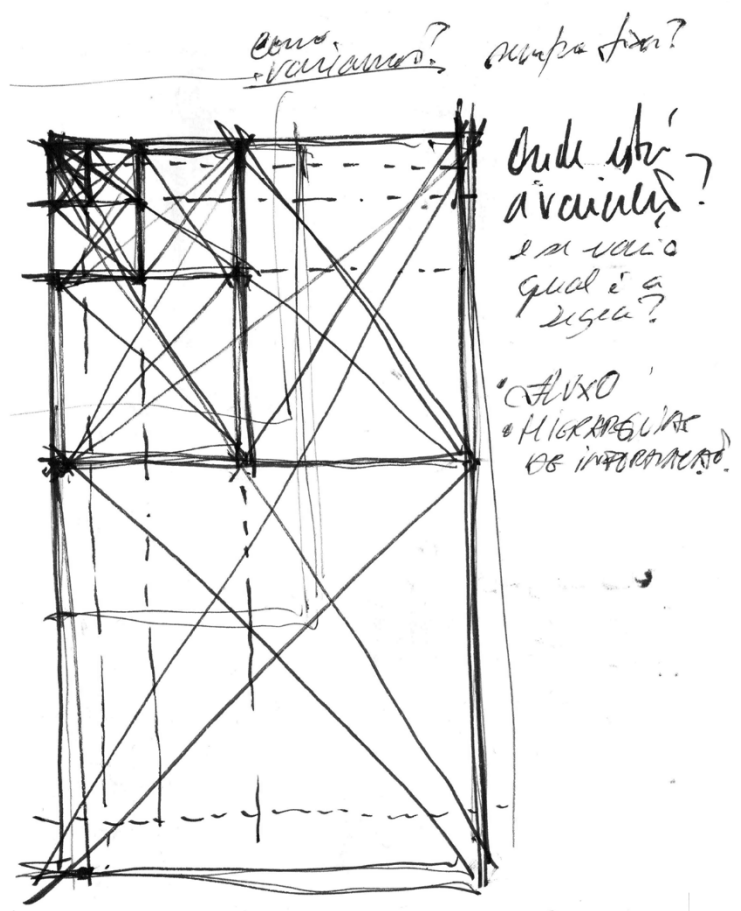 como
variamos? sempre fixa?
Onde está
a variação?
e se varia
qual é a
regra?
• FLUXO
• HIERARQUIAS
DE INFORMAÇÃO.